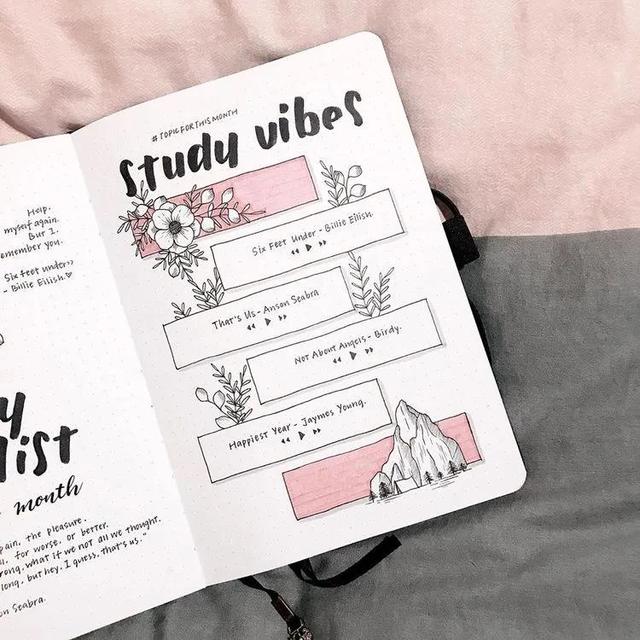 Help.
myself again.
But I
remember you.
Six feet under>>
- Billie Eilish.♡
y
list
month
pain, the pleasure.
for worse, or better.
wrong, what if we not all we thought.
long, but hey, I guess, that's us."
on Seabra.
#TOPICFORTHISMONTH
study vibes
Six Feet Under - Billie Eilish.
That's Us - Anson Seabra
Not About Angels - Birdy.
Happiest Year - Jaymes Young.